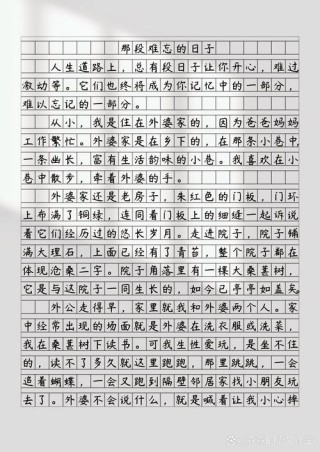 那段难忘的日子
人生道路上，总有段日子让你开心，难过
叙动等。它们也终将成为你记忆中的一部分，
难以忘记的一部分。
从小，我是住在外婆家的，因为爸爸妈妈
工作繁忙。外婆家是在乡下的，在那条小巷中，
一条幽长，富有生活韵味的小巷。我喜欢在小
巷中散步，牵着外婆的手。
外婆家还是老房子，朱红色的门板，门环
上布满了铜绿，连同着门板上的细缝一起诉说
着它们经历过的悠长岁月。走进院子，院子铺
满大理石，上面已经有了青苔，整个院子都在
体现沧桑二字。院子角落里有一棵大桑葚树，
它是与这院子一同生长的，如今已亭亭如盖矣
外公走得早，家里就我和外婆两个人。家
中经常出现的场面就是外婆在洗衣服或洗菜，
我在桑葚树下读书。可我生性爱玩，是坐不住
的，读不了多久就这里跑跑，那里跳跳，一会
追着蝴蝶，一会又跑到隔壁邻居家找小朋友玩
去了。外婆不会说什么，就是喊着让我小心摔